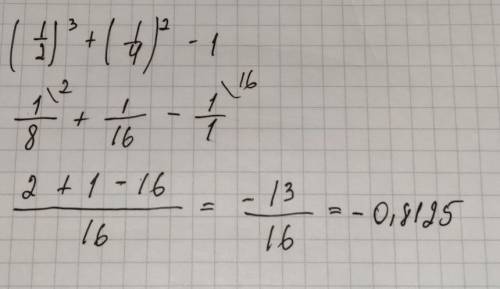 (1/2)³ + (1/4)² - 1
1\2/8 + 1/16 - 1\16/1
2 + 1 - 16/16 = -13/16 = -0,8125